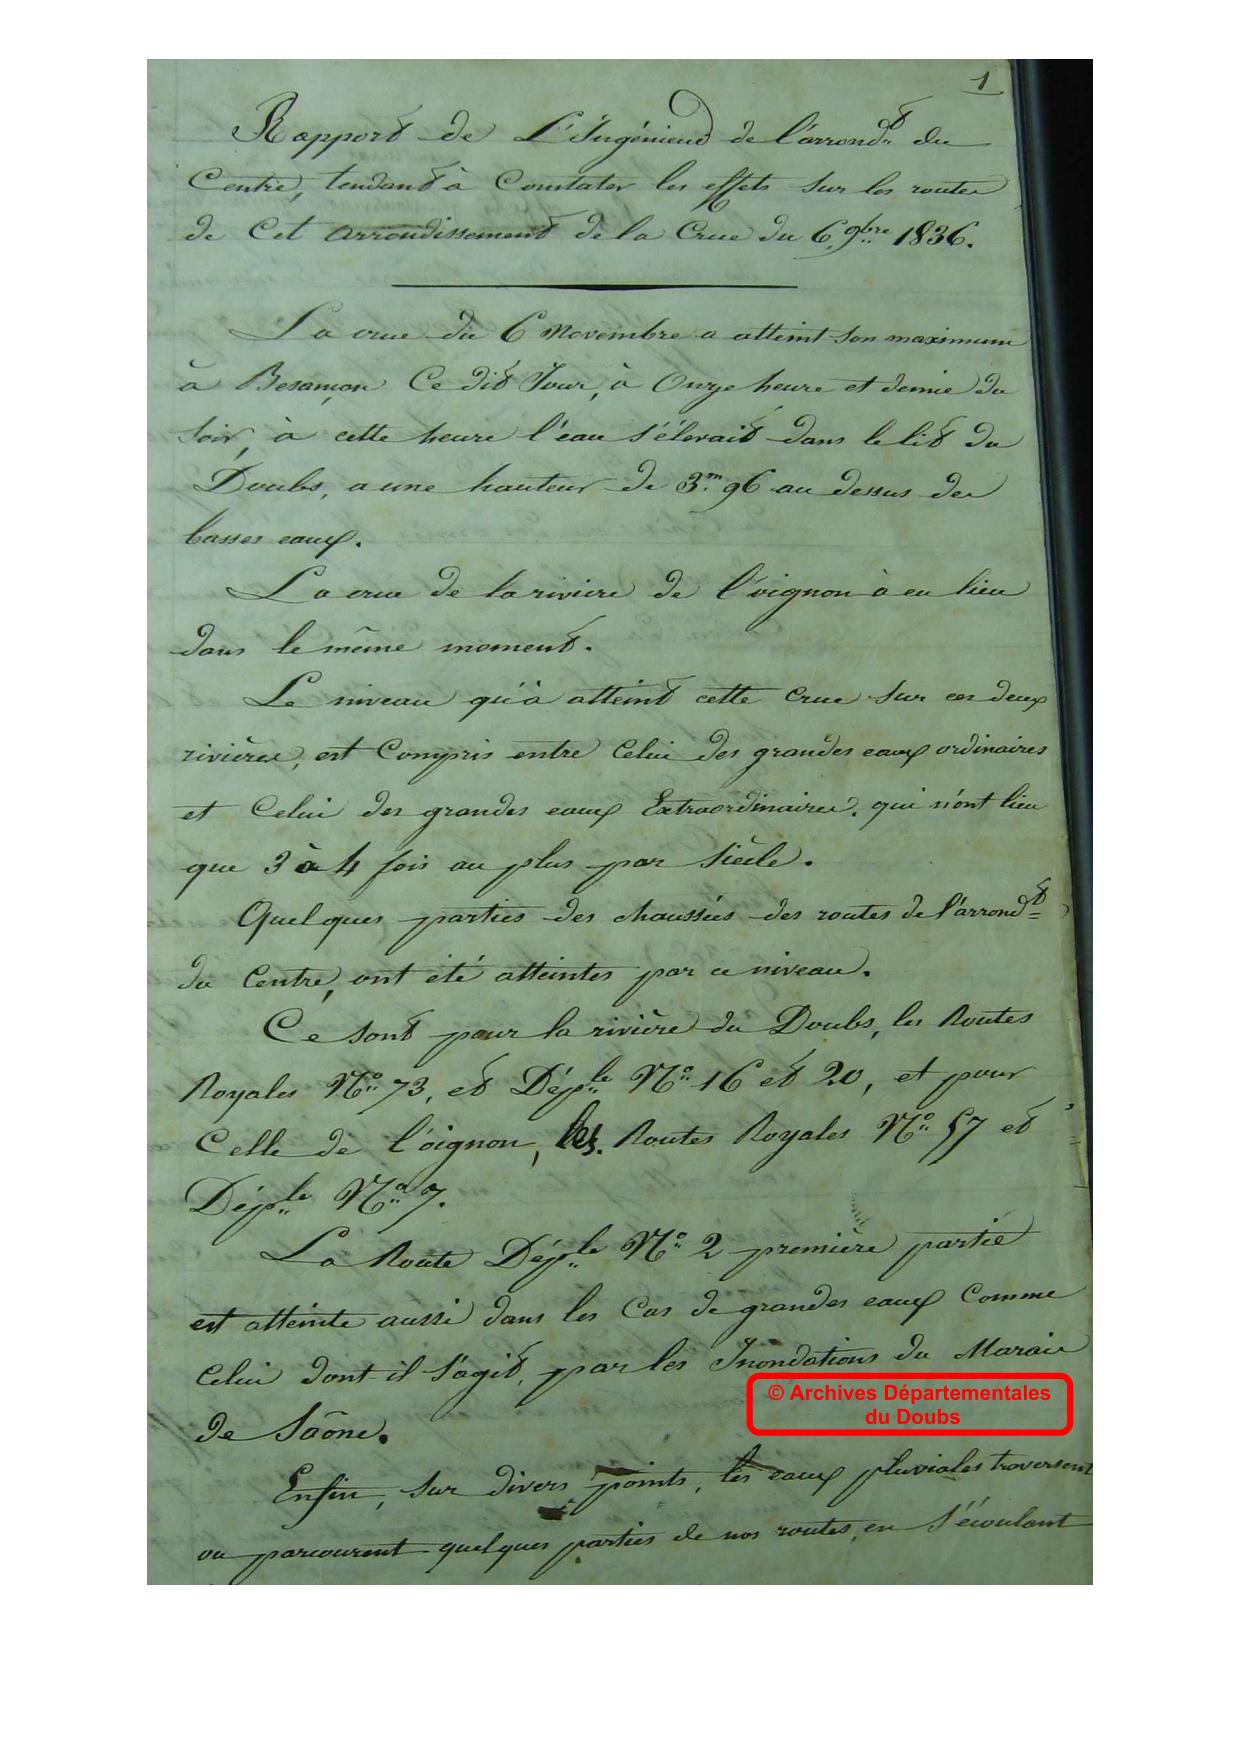 1
Rapport de L'Ingénieur de l'arrondt du
Centre, tendant à Constater les effets sur les routes
de Cet arrondissement de la Crue du 6 9bre 1836.
La crue du 6 Novembre a atteint son maximum
à Besançon Ce dit Jour, à Onze heure et demie du
soir, à cette heure l'eau s'élevait dans le lit du
Doubs, a une hauteur de 3.m 96 au dessus des
basses eaux.
La crue de la rivière de l'oignon à eu lieu
dans le même moment.
Le niveau qu'à atteint cette Crue sur ces deux
rivières, est Compris entre Celui des grandes eaux ordinaires
et Celui des grandes eaux Extraordinaires, qui n'ont lieu
que 3 à 4 fois au plus par Siècle.
Quelques parties des chaussées des routes de l'arrondt
du Centre, ont été atteintes par ce niveau.
Ce sont pour la rivière du Doubs, les Routes
Royales No 73, et Déple No 16 et 20, et pour
Celle de l'oignon, les Routes Royales No 57 et
Déple No 7.
La Route Déple No 2 première partie
est atteinte aussi dans les Cas de grandes eaux Comme
Celui dont il s'agit, par les Inondations du Marais
© Archives Départementales
du Doubs
de Saône.
Enfin, sur divers points, les eaux pluviales traversent
ou parcourent quelques parties de nos routes, en s'écoulant